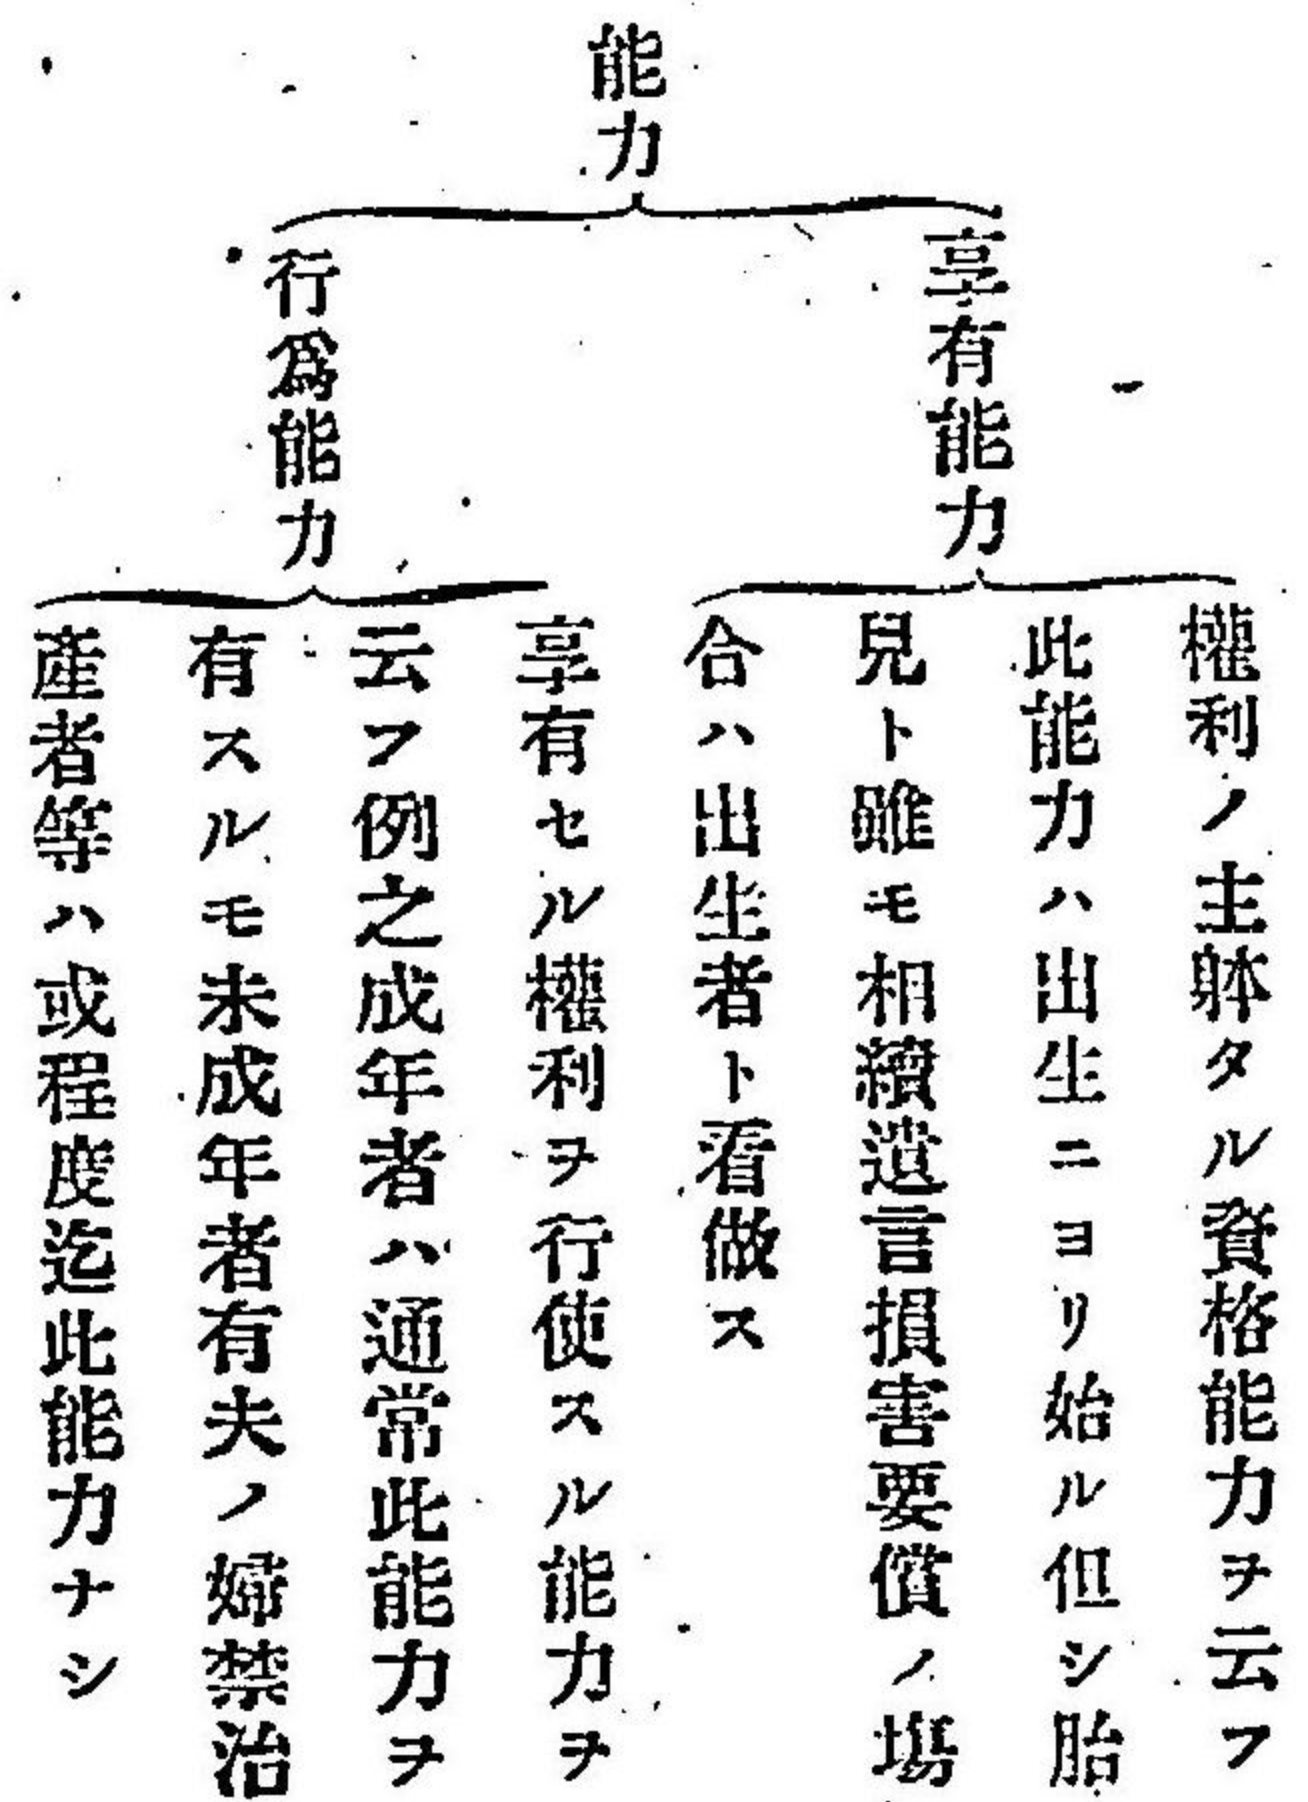 能力
享有能力
權利ノ主躰タル資格能力ヲ云フ
此能力ハ出生ニヨリ始ル但シ胎
兒ト雖モ相續遺言損害要償ノ塲
合ハ出生者ト看做ス
行爲能力
享有セル權利ヲ行使スル能力ヲ
云フ例之成年者ハ通常此能力ヲ
有スルモ未成年者有夫ノ婦禁治
產者等ハ或程度迄此能力ナシ